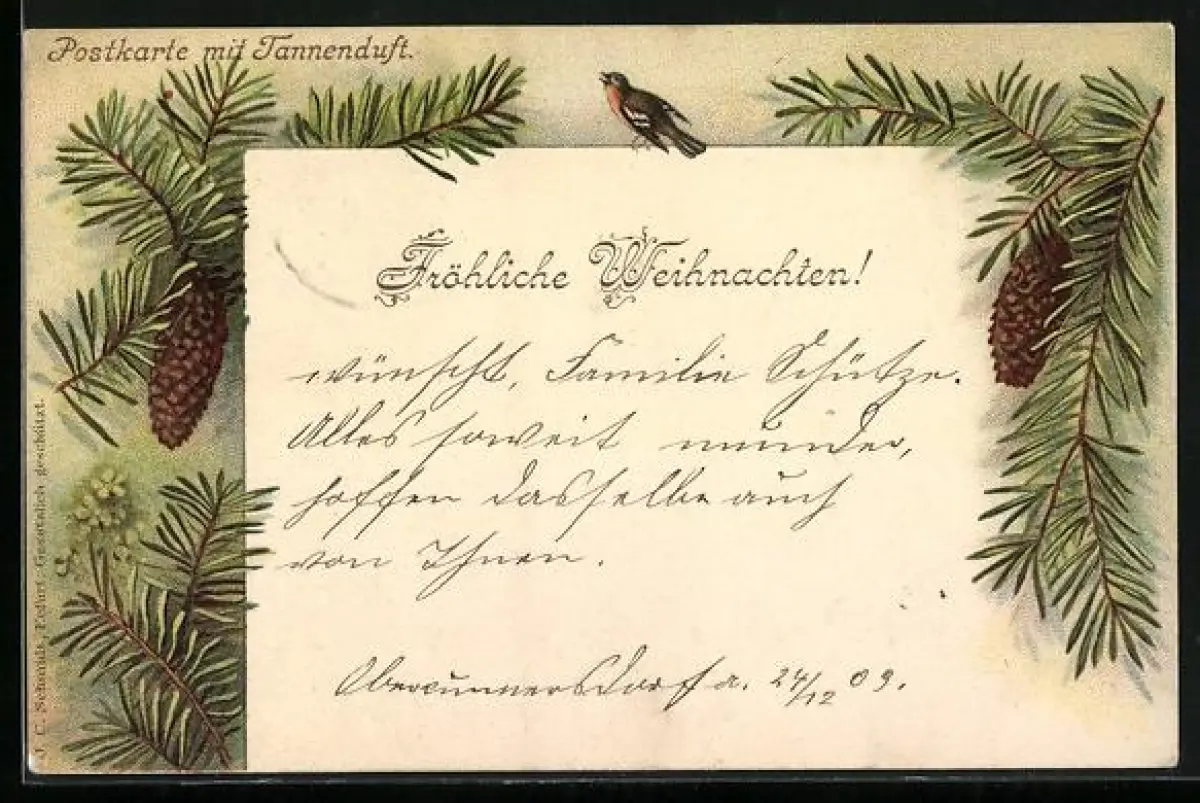 Postkarte mit Tannenduft.
Fröhliche Weihnachten!
wünscht, Familie Schütze.
Alles soweit munder,
hoffen dasselbe auch
von Ihnen.
Obercunnersdorf a. 24/12 03.
J. C. Schmidt, Erfurt. Gesetzlich geschützt.